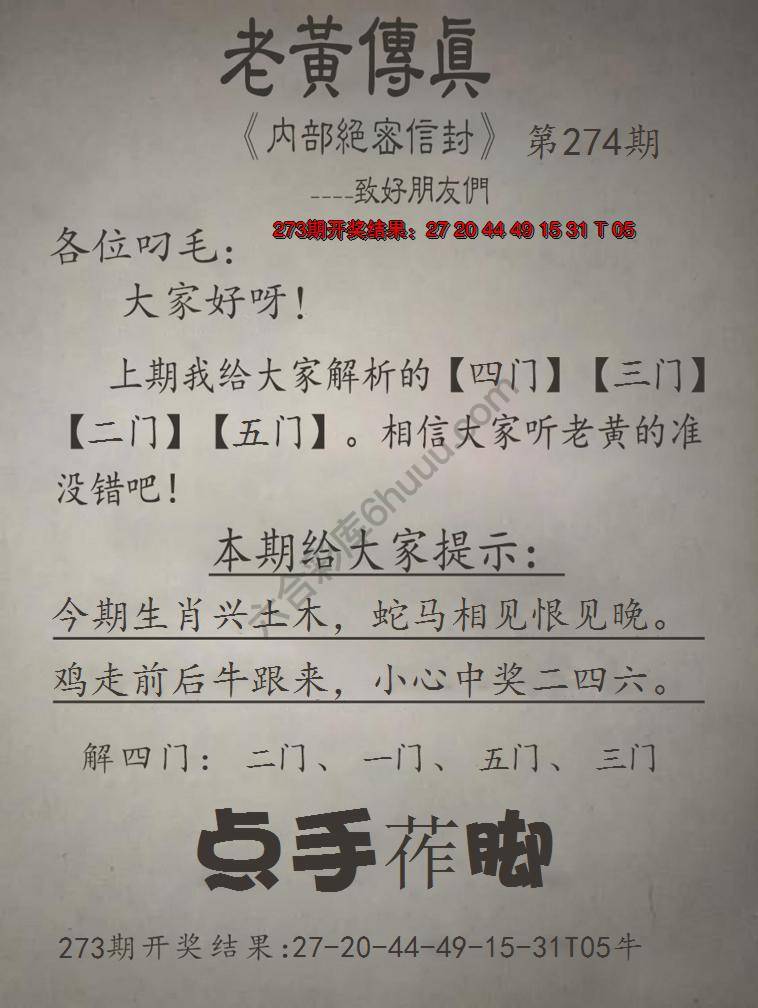 老黃傳眞
《内部絕密信封》 第274期
----致好朋友們
273期开奖结果：27 20 44 49 15 31 T 05
各位叼毛：
大家好呀！
上期我给大家解析的【四门】【三门】
【二门】【五门】。相信大家听老黄的准
没错吧！
六合彩库6huuu.com
本期给大家提示：
今期生肖兴土木，蛇马相见恨见晚。
鸡走前后牛跟来，小心中奖二四六。
解四门： 二门、 一门、 五门、 三门
点手莋脚
273期开奖结果:27-20-44-49-15-31T05牛